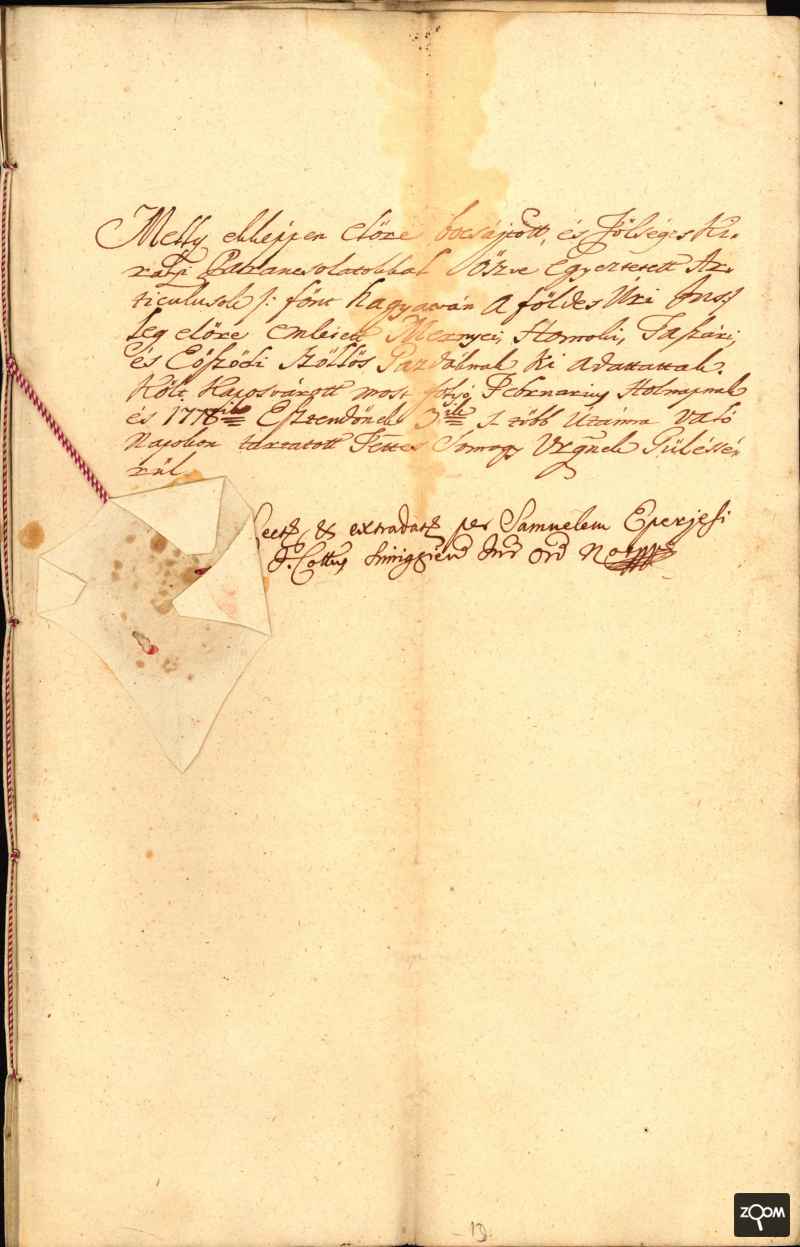 Melly ekképpen előre bocsájtott, és Fölséges Ki-
rályi Parancsolatokkal öszve Egyeztetett Ar-
ticulusok /: fönt hagyatván A földes Úri Jus:/
leg előre emletett Mernyei, Homoki, Taßári,
és Eößödi Szöllös Gazdáknak Ki adattattak.
Költ Kaposvárott most folyó Februarius Holnapnak
és 1778ik Esztendőnek 3ik s több Utánna való
Napokon tartatott Tettes Somogy Vrgÿnek Gyüléssé-
rül
lect & extradat per Samuelem Eperjesi
I. Cottus Simighien Jur Ord Not
13.
ZOOM